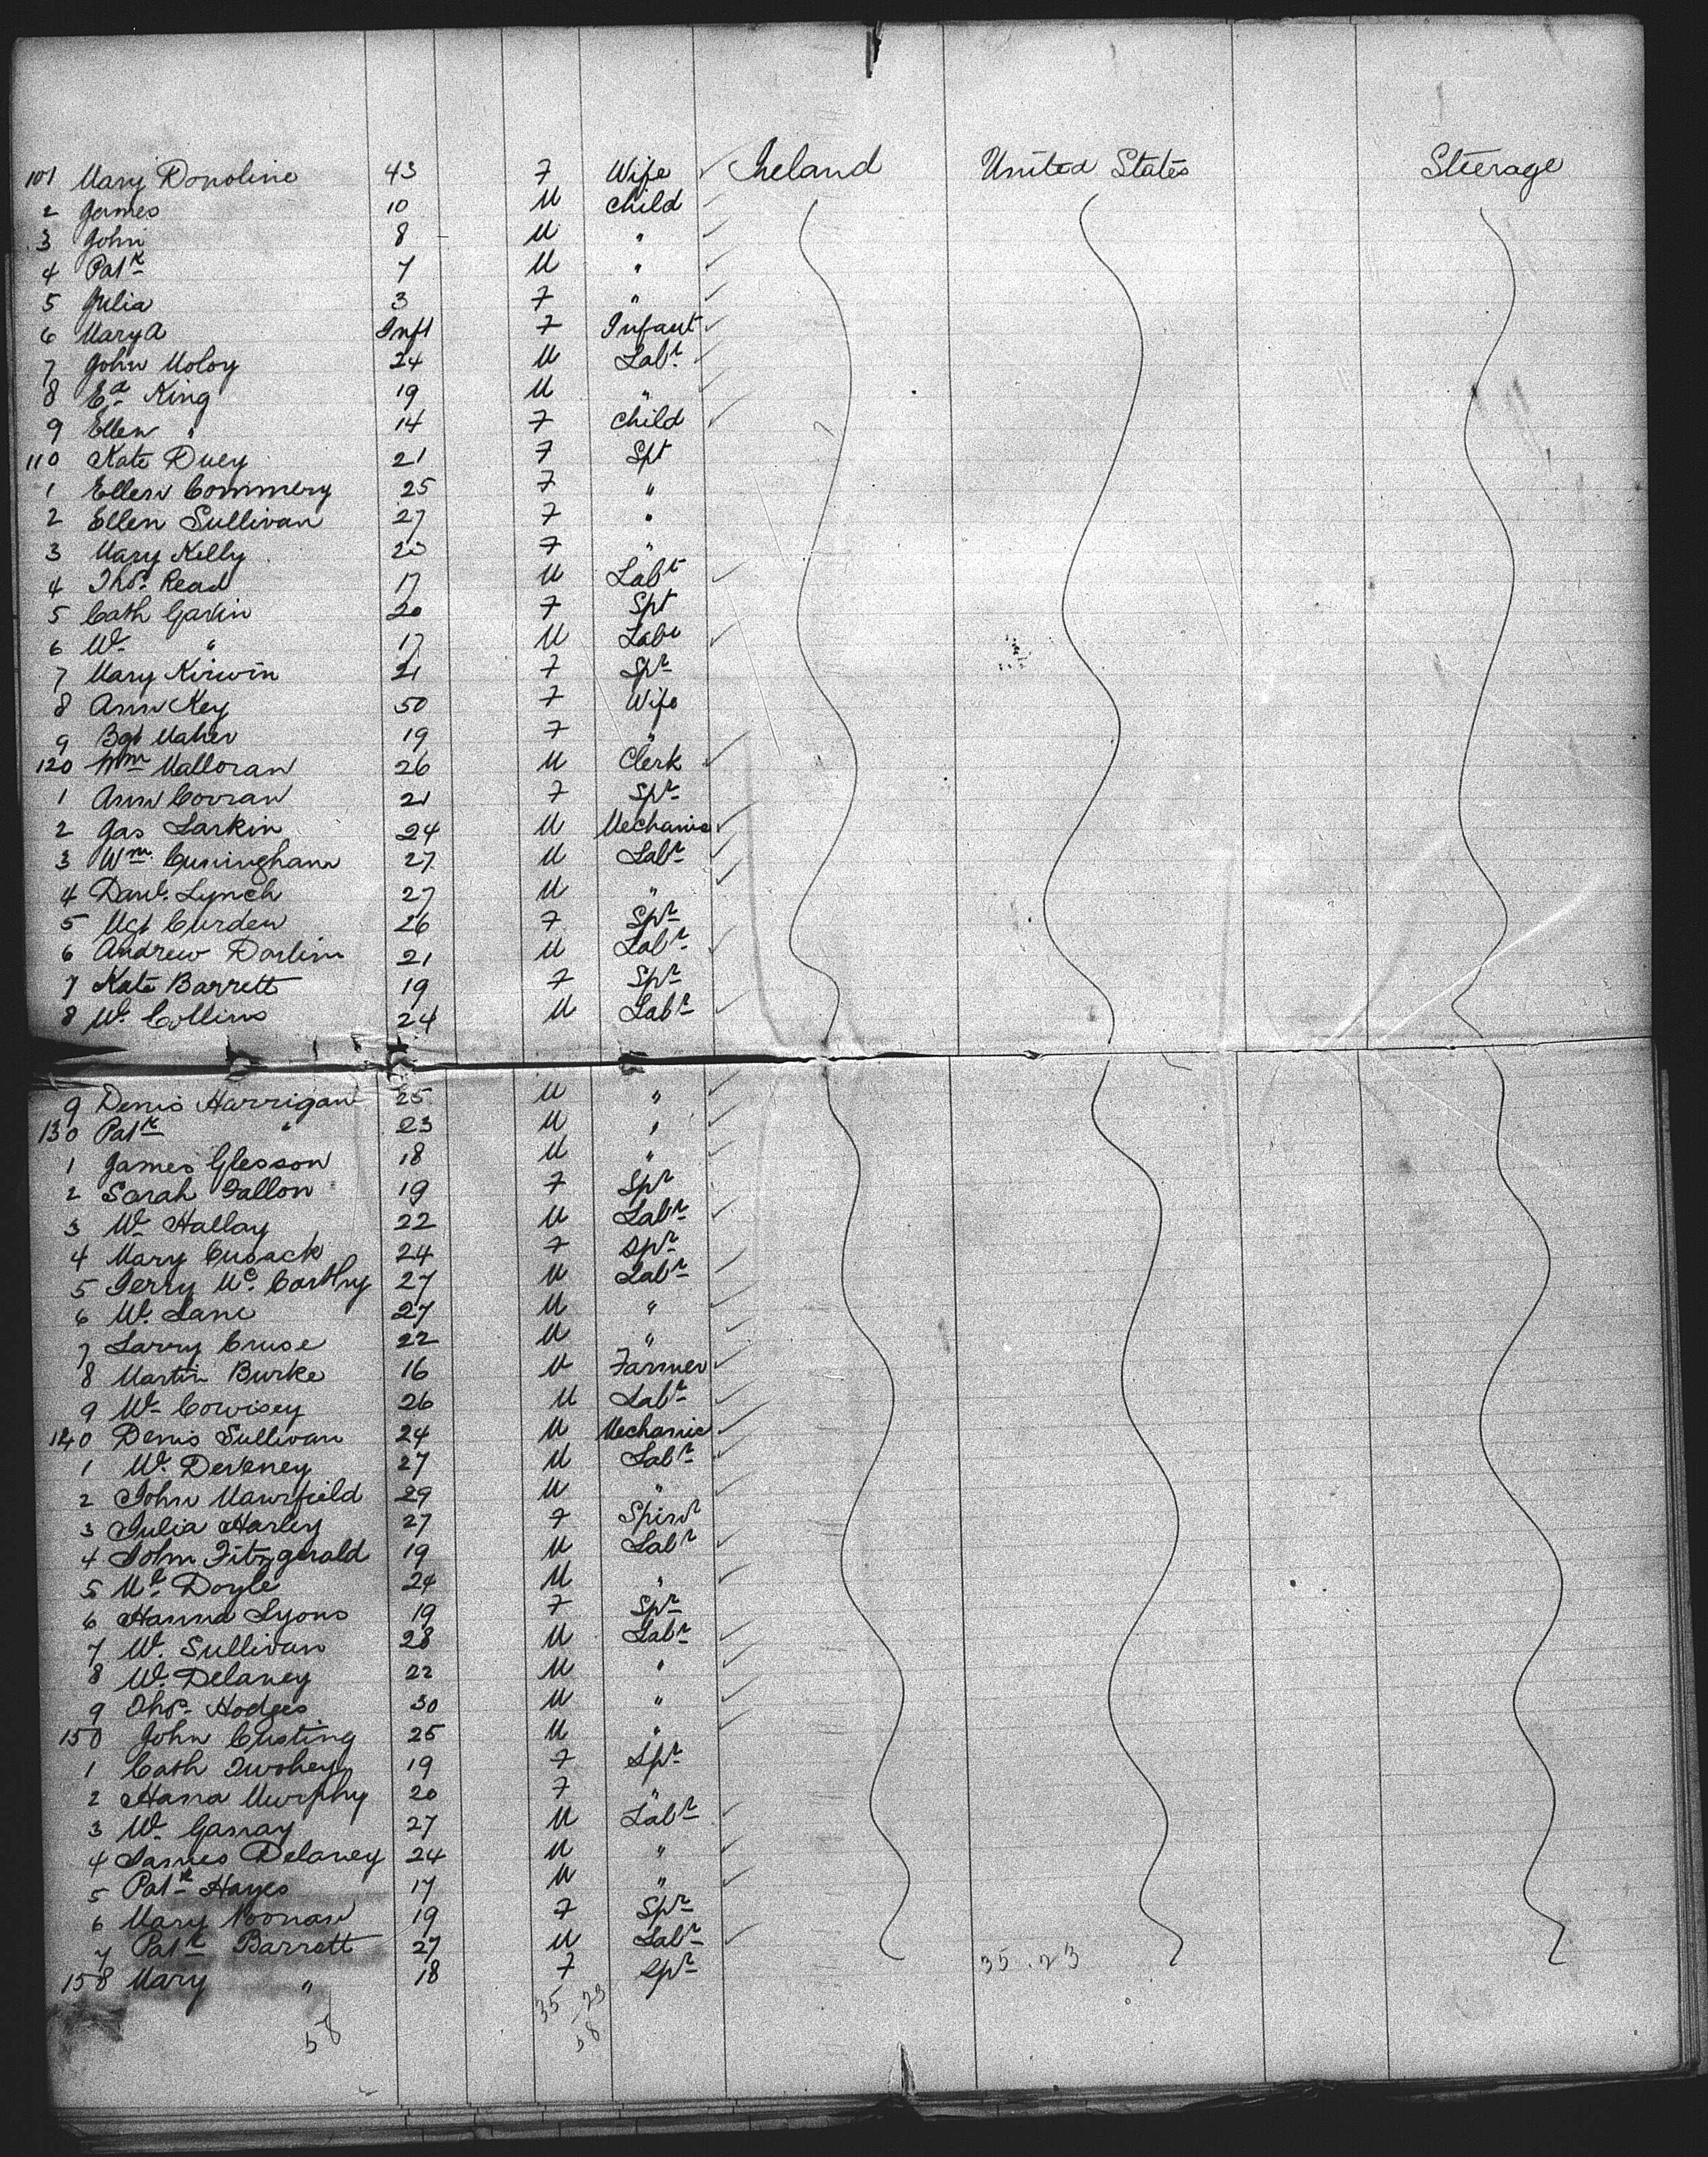 101 Mary Donoline 43 F Wife Ireland United States Steerage
2 James 10 M Child
3 John 8 M "
4 Patk 7 M "
5 Julia 3 F "
6 Mary A Inft F Infant
7 John Moloy 24 M Labr
8 Ed King 19 M "
9 Ellen " 14 F Child
110 Kate Duey 21 F Spt
1 Ellen Commery 25 F "
2 Ellen Sullivan 27 F "
3 Mary Kelly 20 F "
4 Thos Read 17 M Labr
5 Cath Gavin 20 F Spt
6 W " 17 M Labr
7 Mary Kirwin 21 F Spr
8 Ann Key 50 F Wife
9 Bgt Maher 19 F "
120 Wm Malloran 26 M Clerk
1 Ann Corran 21 F Spr
2 Jas Larkin 24 M Mechanic
3 Wm Cuningham 27 M Labr
4 Danl. Lynch 27 M "
5 Mgt Curden 26 F Spr
6 Andrew Darlim 21 M Labr
7 Kate Barrett 19 F Spr
8 W. Collins 24 M Labr
9 Denis Harrigan 25 M "
130 Patk " 23 M "
1 James Glesson 18 M "
2 Sarah Fallon 19 F Spr
3 W Hallay 22 M Labr
4 Mary Cusack 24 F Spr
5 Jerry Mc Carthy 27 M Labr
6 W. Lane 27 M "
7 Larry Cruse 22 M "
8 Martin Burke 16 M Farmer
9 W Cowisey 26 M Labr
140 Denis Sullivan 24 M Mechanic
1 W. Deveney 27 M Labr
2 John Mawfield 29 M "
3 Julia Harley 27 F Spinr
4 John Fitzgerald 19 M Labr
5 Ml Doyle 24 M "
6 Hanna Lyons 19 F Spr
7 W. Sullivan 28 M Labr
8 W. Delaney 22 M "
9 Thos Hodges 30 M "
150 John Custing 25 M "
1 Cath Twohey 19 F Spr
2 Hana Murphy 20 F "
3 W. Ganray 27 M Labr
4 James Delaney 24 M "
5 Patk Hayes 17 M "
6 Mary Noonan 19 F Spr
7 Patk Barrett 27 M Labr
158 Mary " 18 F Spr
35 . 23
35 23
58 58